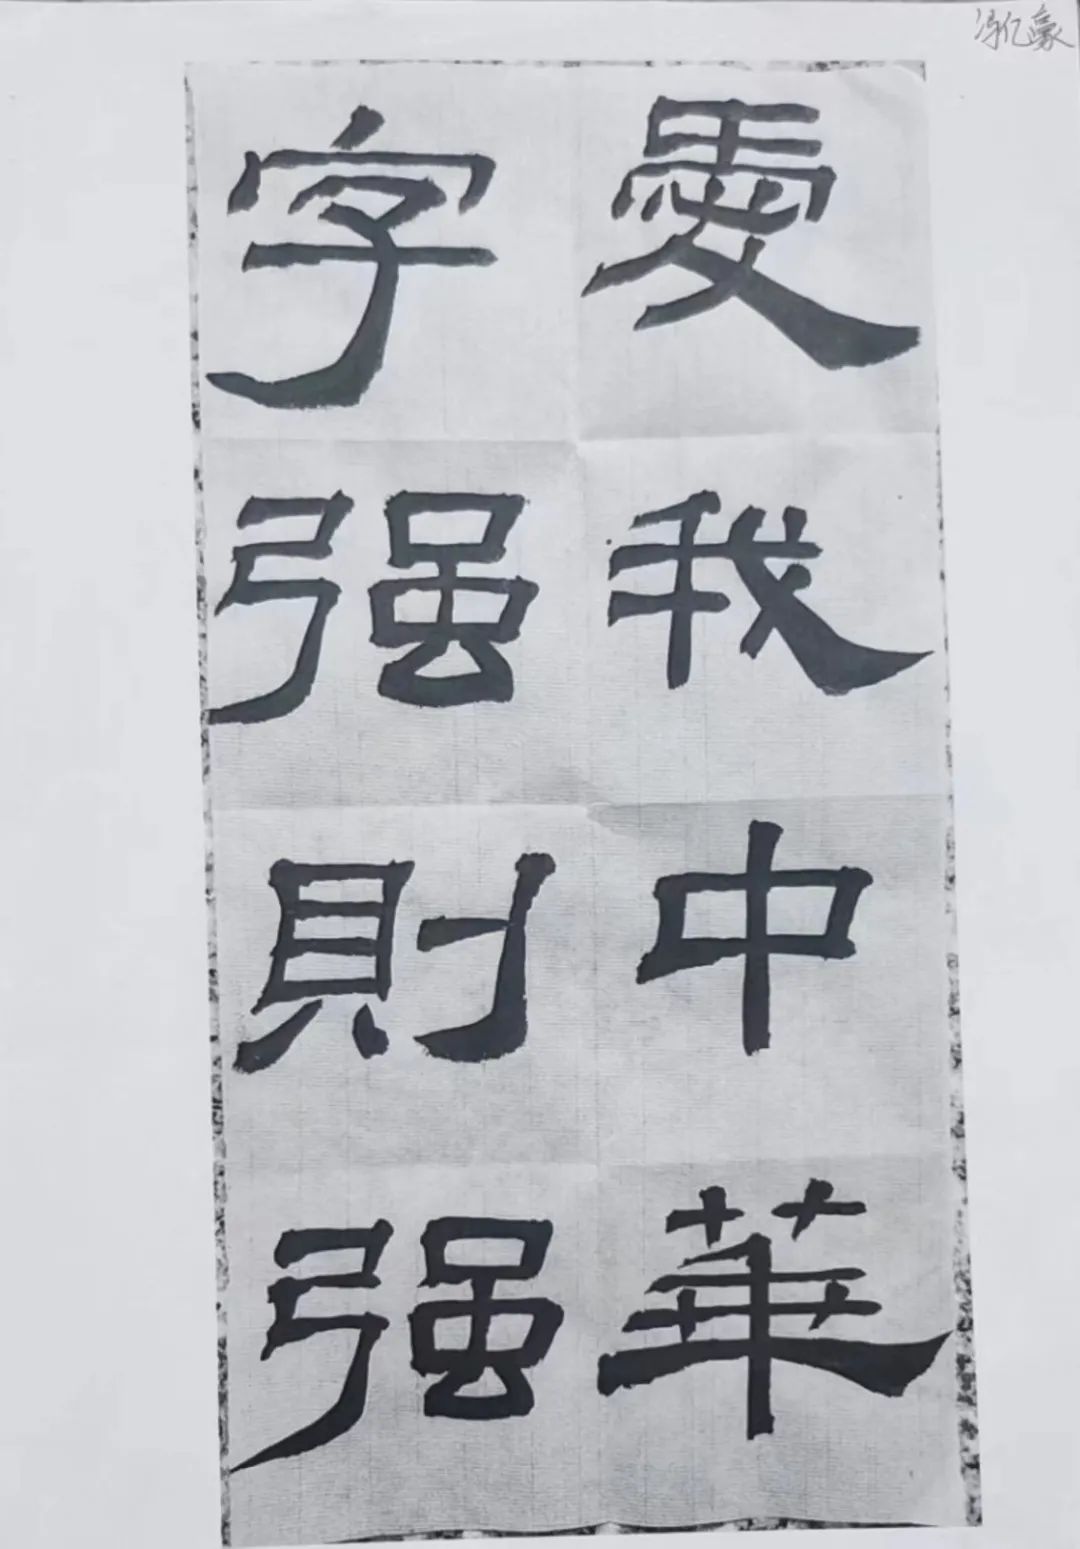 冯亿豪
愛我中華
字强則强